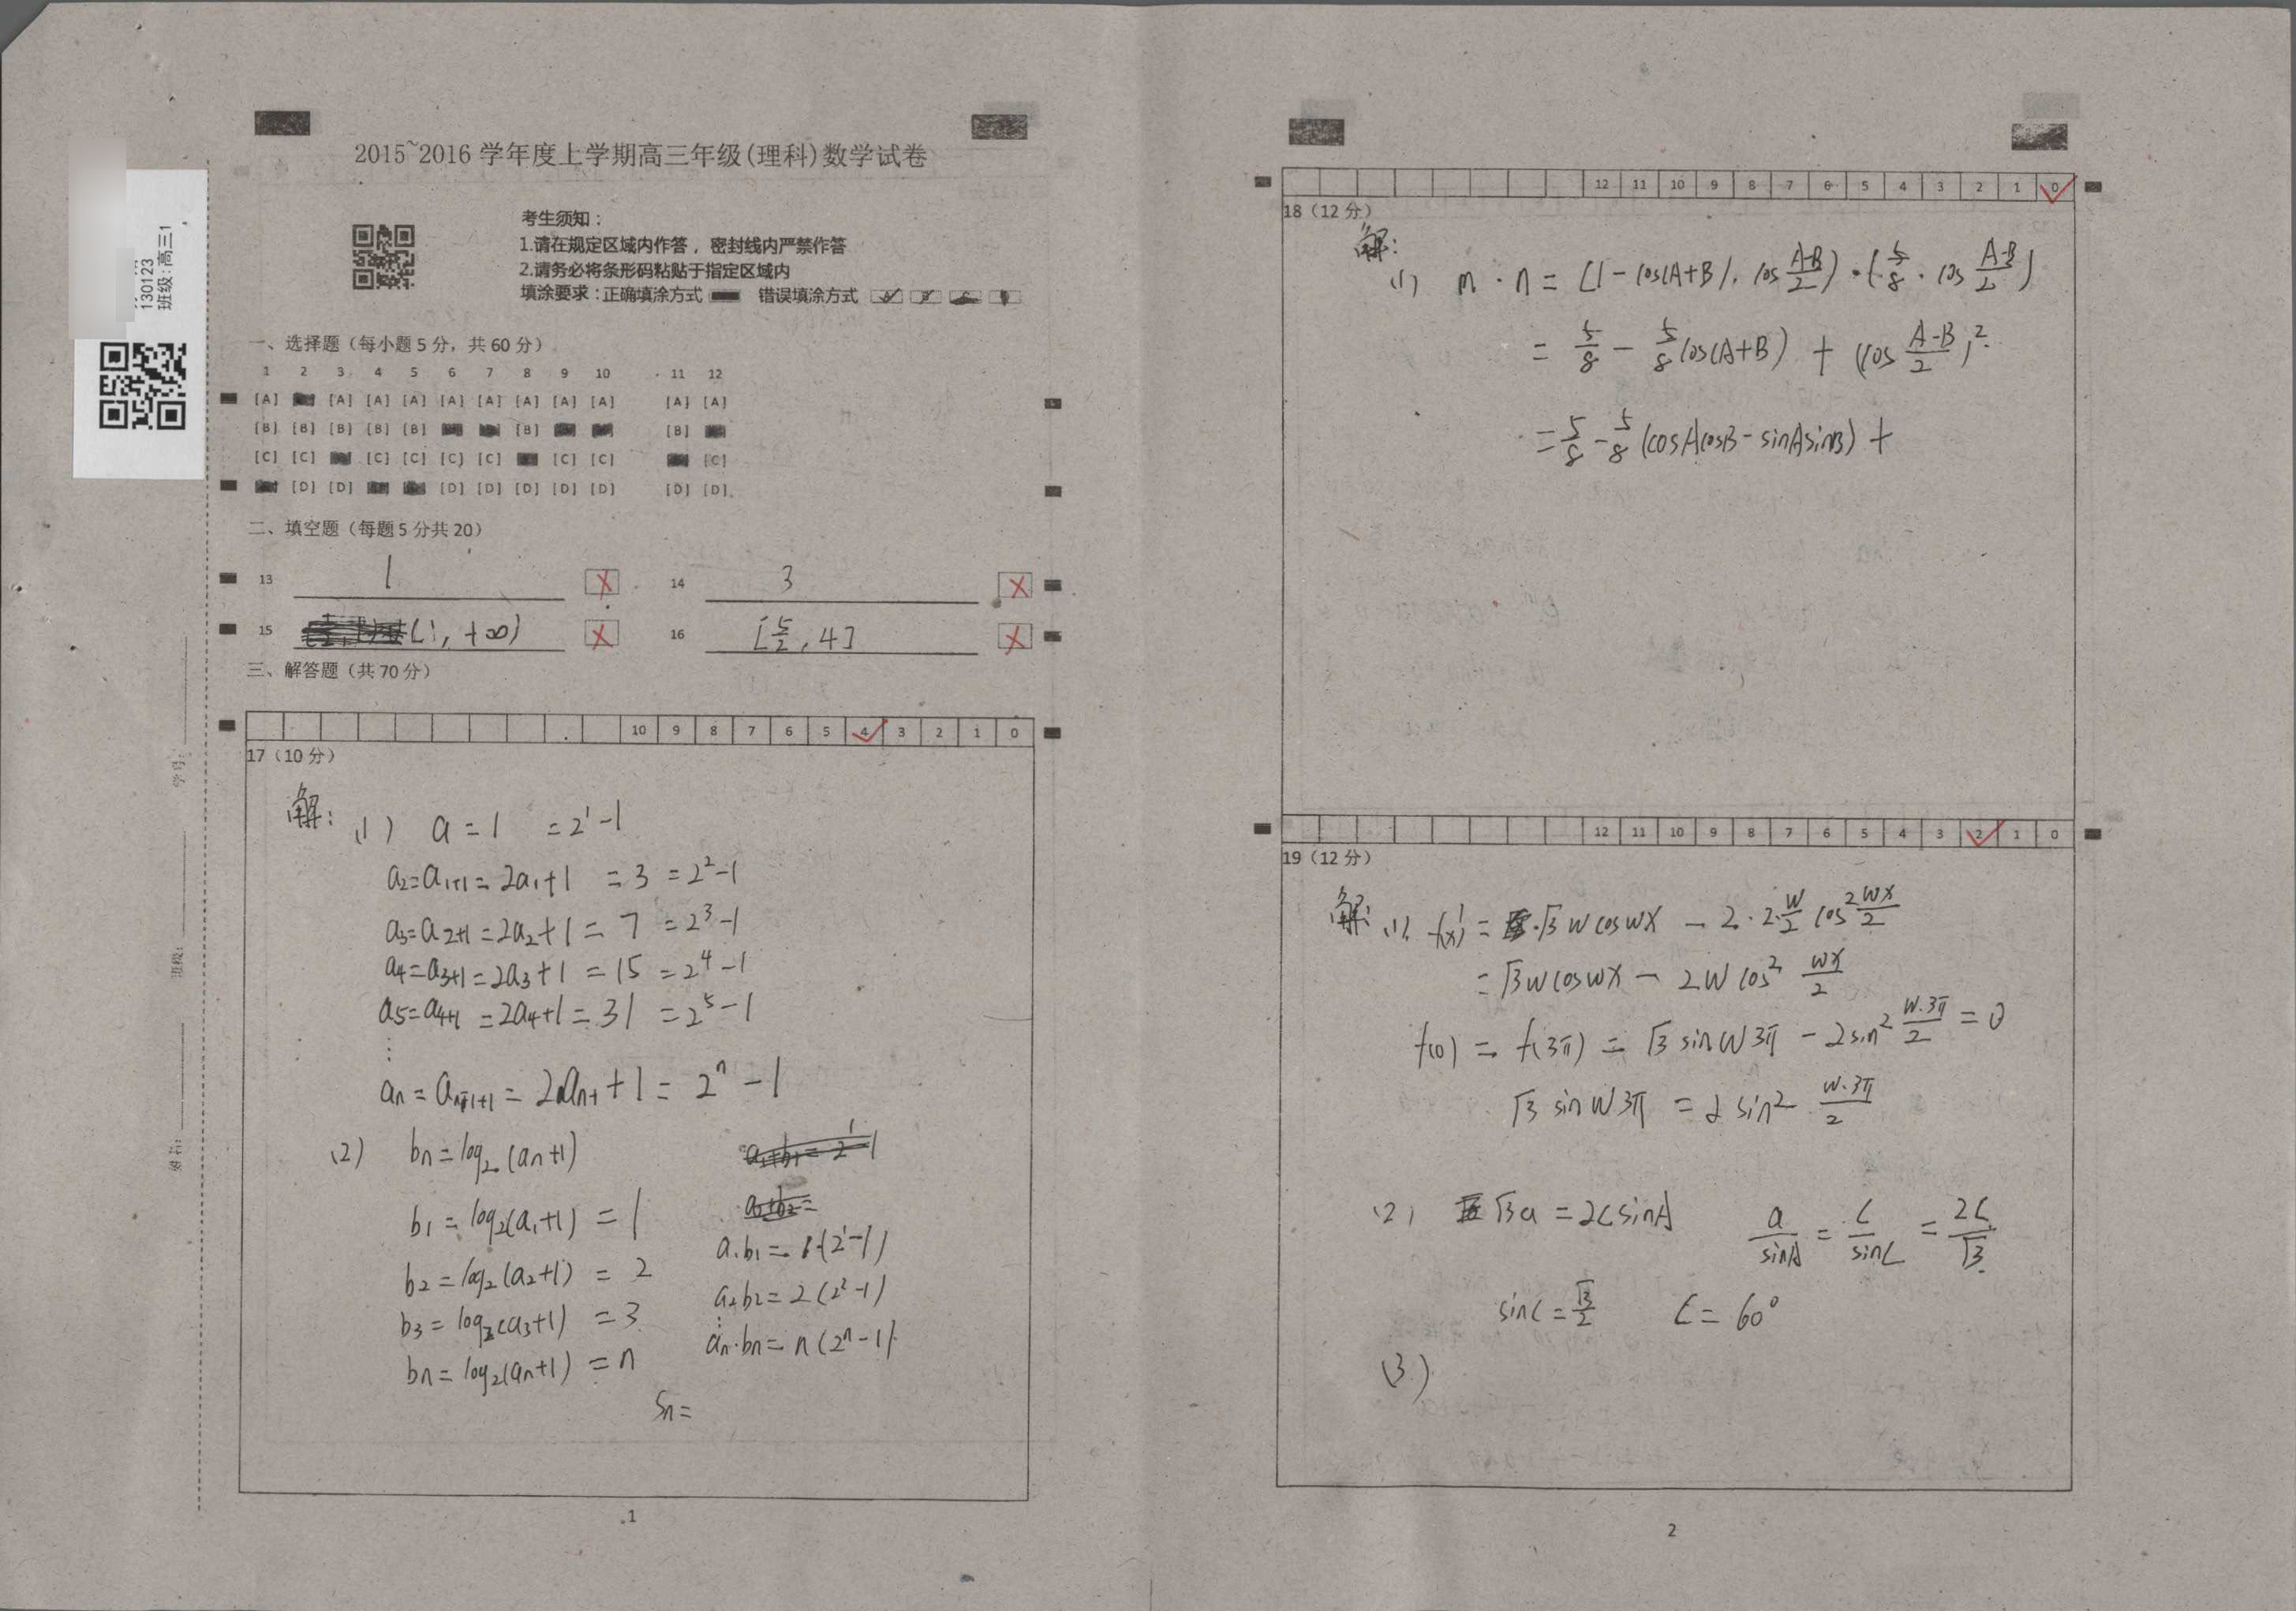 2015~2016 学年度上学期高三年级(理科)数学试卷
1301123
班级:高三1
考生须知：
1.请在规定区域内作答，密封线内严禁作答
2.请务必将条形码粘贴于指定区域内
填涂要求：正确填涂方式 错误填涂方式
一、选择题（每小题 5 分，共 60 分）
1 2 3 4 5 6 7 8 9 10 11 12
[A] [A] [A] [A] [A] [A] [A] [A] [A] [A] [A]
[B] [B] [B] [B] [B] [B] [B]
[C] [C] [C] [C] [C] [C] [C] [C] [C]
[D] [D] [D] [D] [D] [D] [D] [D] [D]
二、填空题（每题 5 分共 20）
13 1 14 3
15 (1, +∞) 16 [5/2, 4]
三、解答题（共 70 分）
10 9 8 7 6 5 4 3 2 1 0
17（10 分）
解: (1) a = 1 = 2¹-1
a₂=a₁₊₁= 2a₁+1 = 3 = 2²-1
a₃=a₂₊₁=2a₂+1 = 7 = 2³-1
a₄=a₃₊₁=2a₃+1 = 15 = 2⁴-1
a₅=a₄₊₁ =2a₄+1 = 31 = 2⁵-1
⋮
aₙ = aₙ₋₁₊₁ = 2aₙ₋₁ + 1 = 2ⁿ - 1
(2) bₙ = log₂(aₙ+1)
b₁ = log₂(a₁+1) = 1
b₂ = log₂(a₂+1) = 2
b₃ = log₂(a₃+1) = 3
bₙ = log₂(aₙ+1) = n
a₁b₁ = 1·(2¹-1)
a₂b₂ = 2(2²-1)
⋮
aₙ·bₙ = n(2ⁿ-1)
Sₙ =
学号:
班级:
姓名:
1
12 11 10 9 8 7 6 5 4 3 2 1 0
18（12 分）
解:
(1) m · n = (1 - cos(A+B), cos (A-B)/2) · (5/8 · cos (A-B)/2)
= 5/8 - 5/8 cos(A+B) + (cos (A-B)/2)²
= 5/8 - 5/8 (cosAcosB - sinAsinB) +
12 11 10 9 8 7 6 5 4 3 2 1 0
19（12 分）
解: (1) f(x)' = ·√3 w cos wx - 2·2·w/2 cos² wx/2
= √3 w cos wx - 2w cos² wx/2
f(0) = f(3π) = √3 sin w 3π - 2 sin² w·3π/2 = 0
√3 sin w 3π = 2 sin² w·3π/2
(2) √3 a = 2c sinA a/sinA = c/sinC = 2c/√3
sinC = √3/2 C = 60°
(3)
2